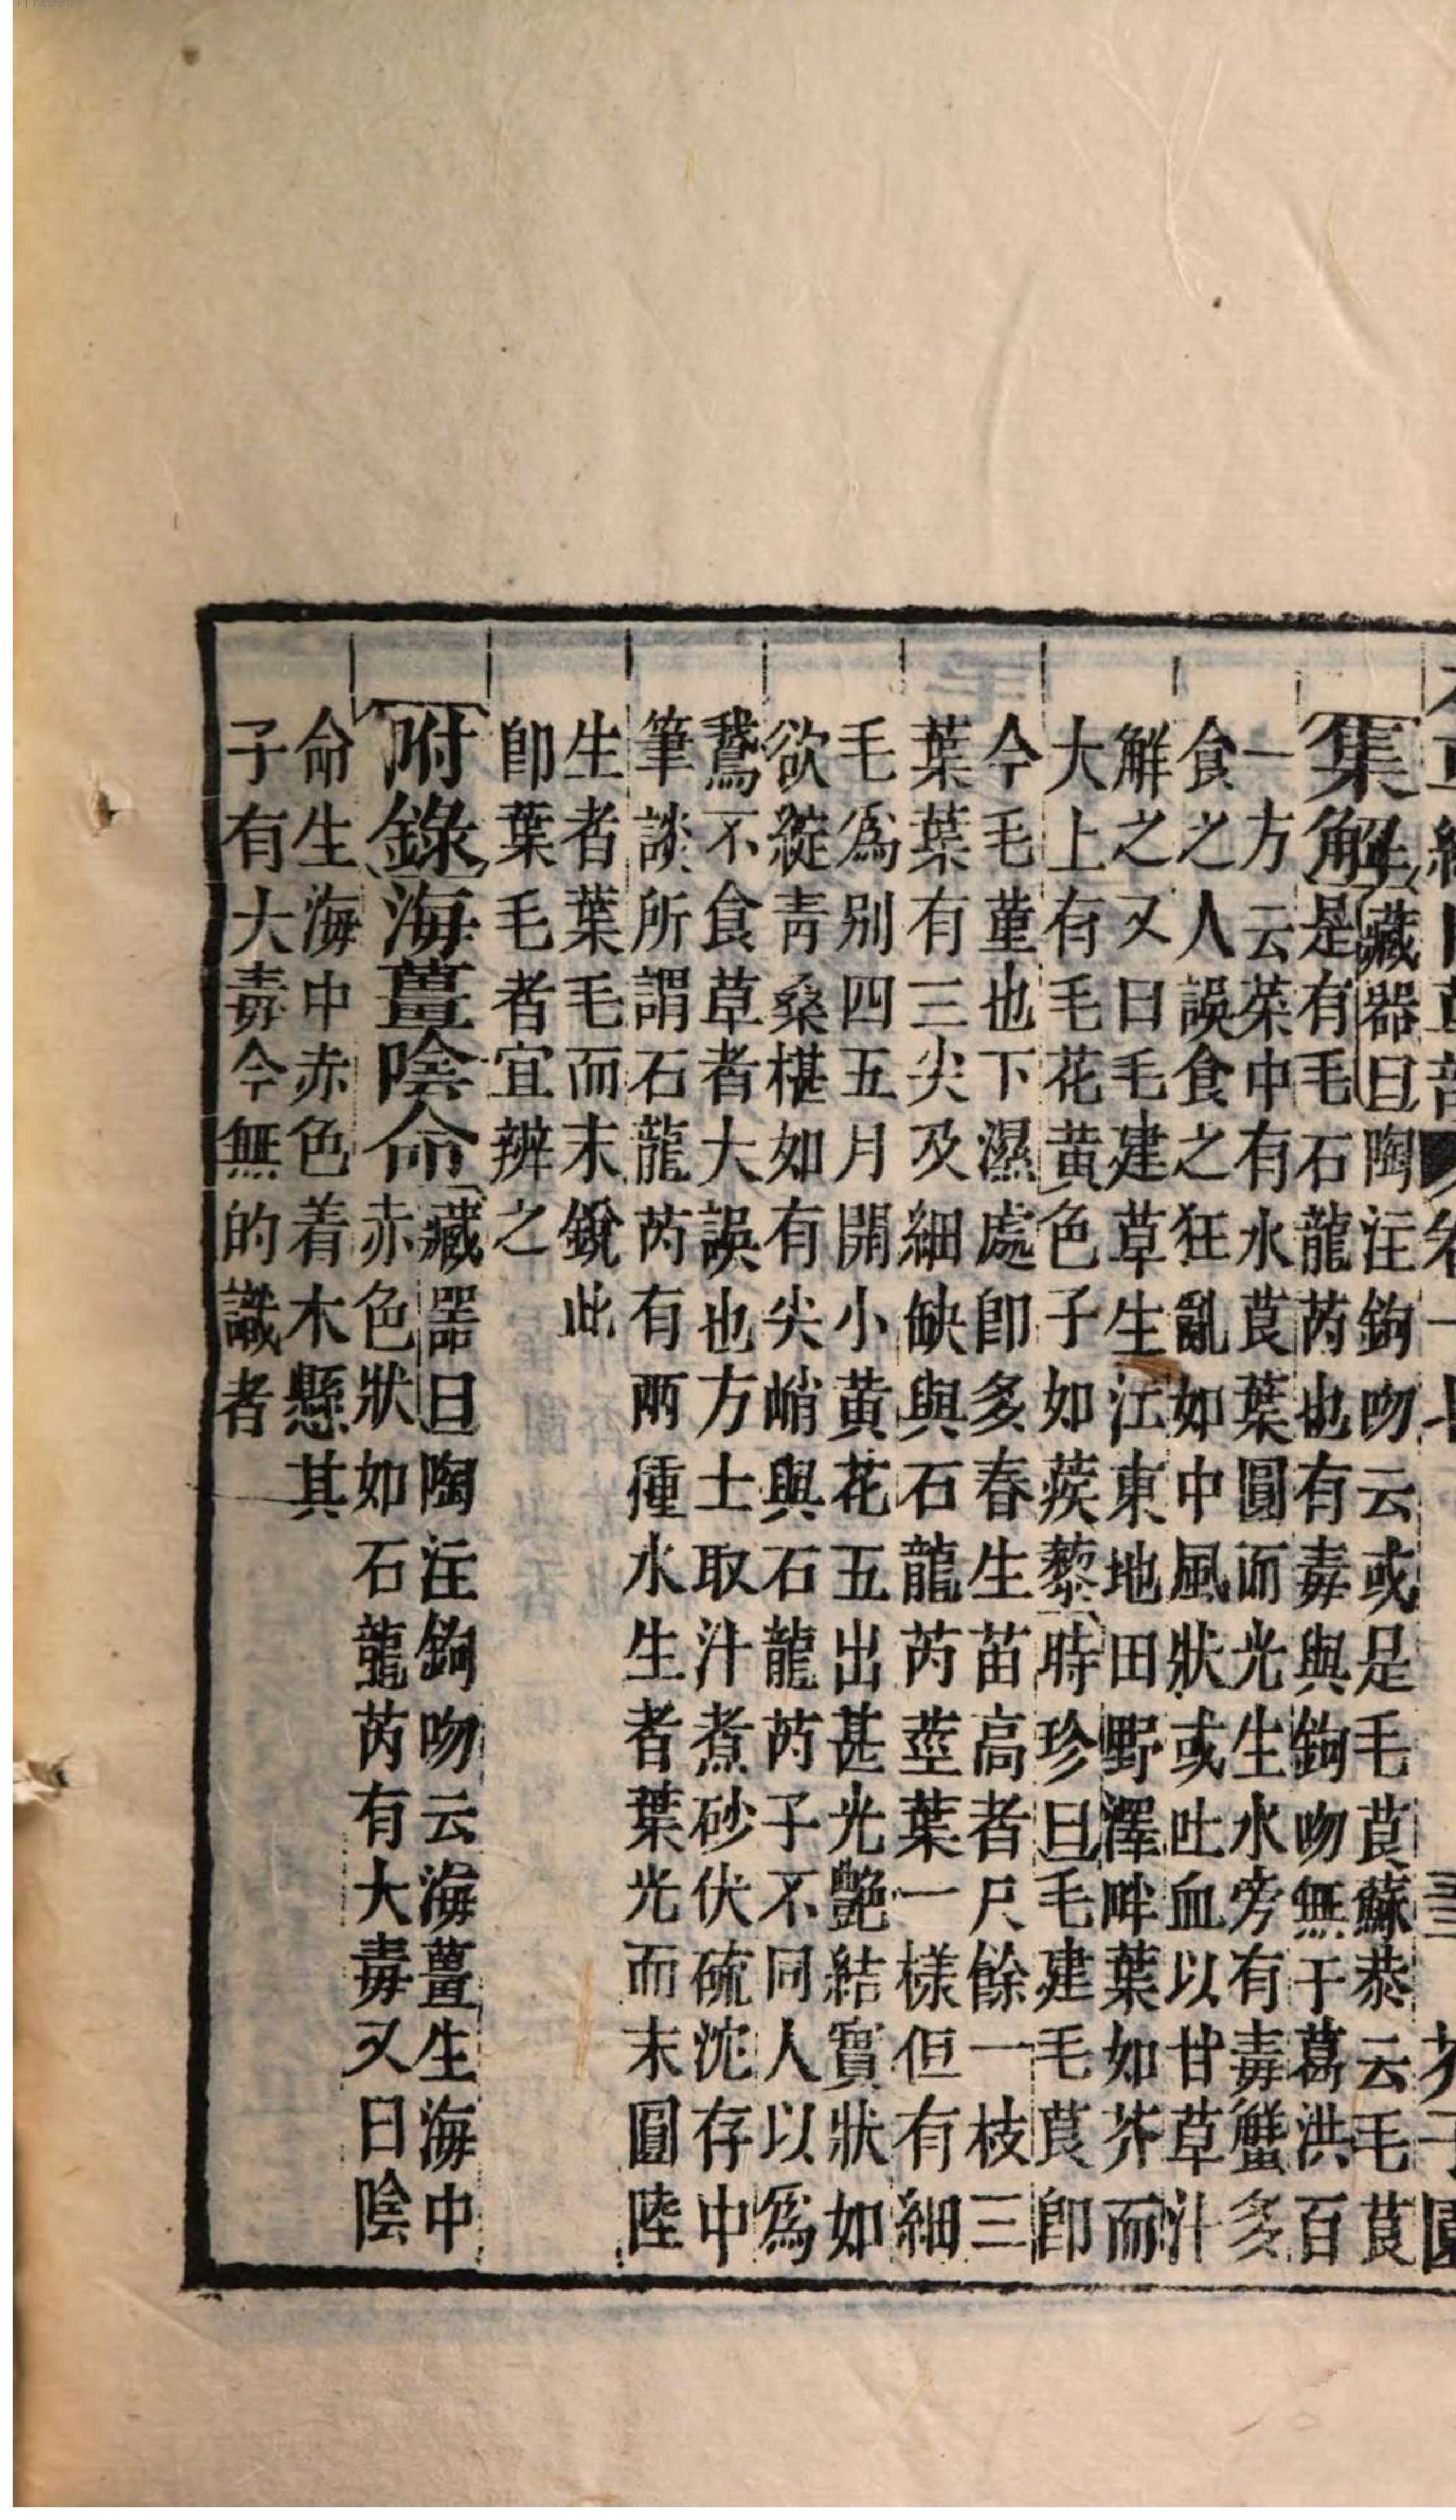 集解藏器曰陶注鉤吻云或是毛茛蘇恭云毛茛
是有毛石龍芮也有毒與鉤吻無干葛洪百
一方云菜中有水茛葉圓而光生水旁有毒蟹多
食之人誤食之狂亂如中風狀或吐血以甘草汁
解之又曰毛建草生江東地田野澤畔葉如芥而
大上有毛花黄色子如蒺藜時珍曰毛建毛茛卽
今毛堇也下濕處卽多春生苗高者尺餘一枝三
葉葉有三尖及細缺與石龍芮莖葉一樣但有細
毛爲別四五月開小黄花五出甚光艶結實狀如
欲綻青桑椹如有尖峭與石龍芮子不同人以爲
鵞不食草者大誤也方士取汁煮砂伏硫沈存中
筆談所謂石龍芮有兩種水生者葉光而末圓陸
生者葉毛而末銳此
卽葉毛者宜辨之
附錄海薑陰命藏器曰陶注鉤吻云海薑生海中
赤色狀如石龍芮有大毒又曰陰
命生海中赤色着木懸其
子有大毒今無的識者